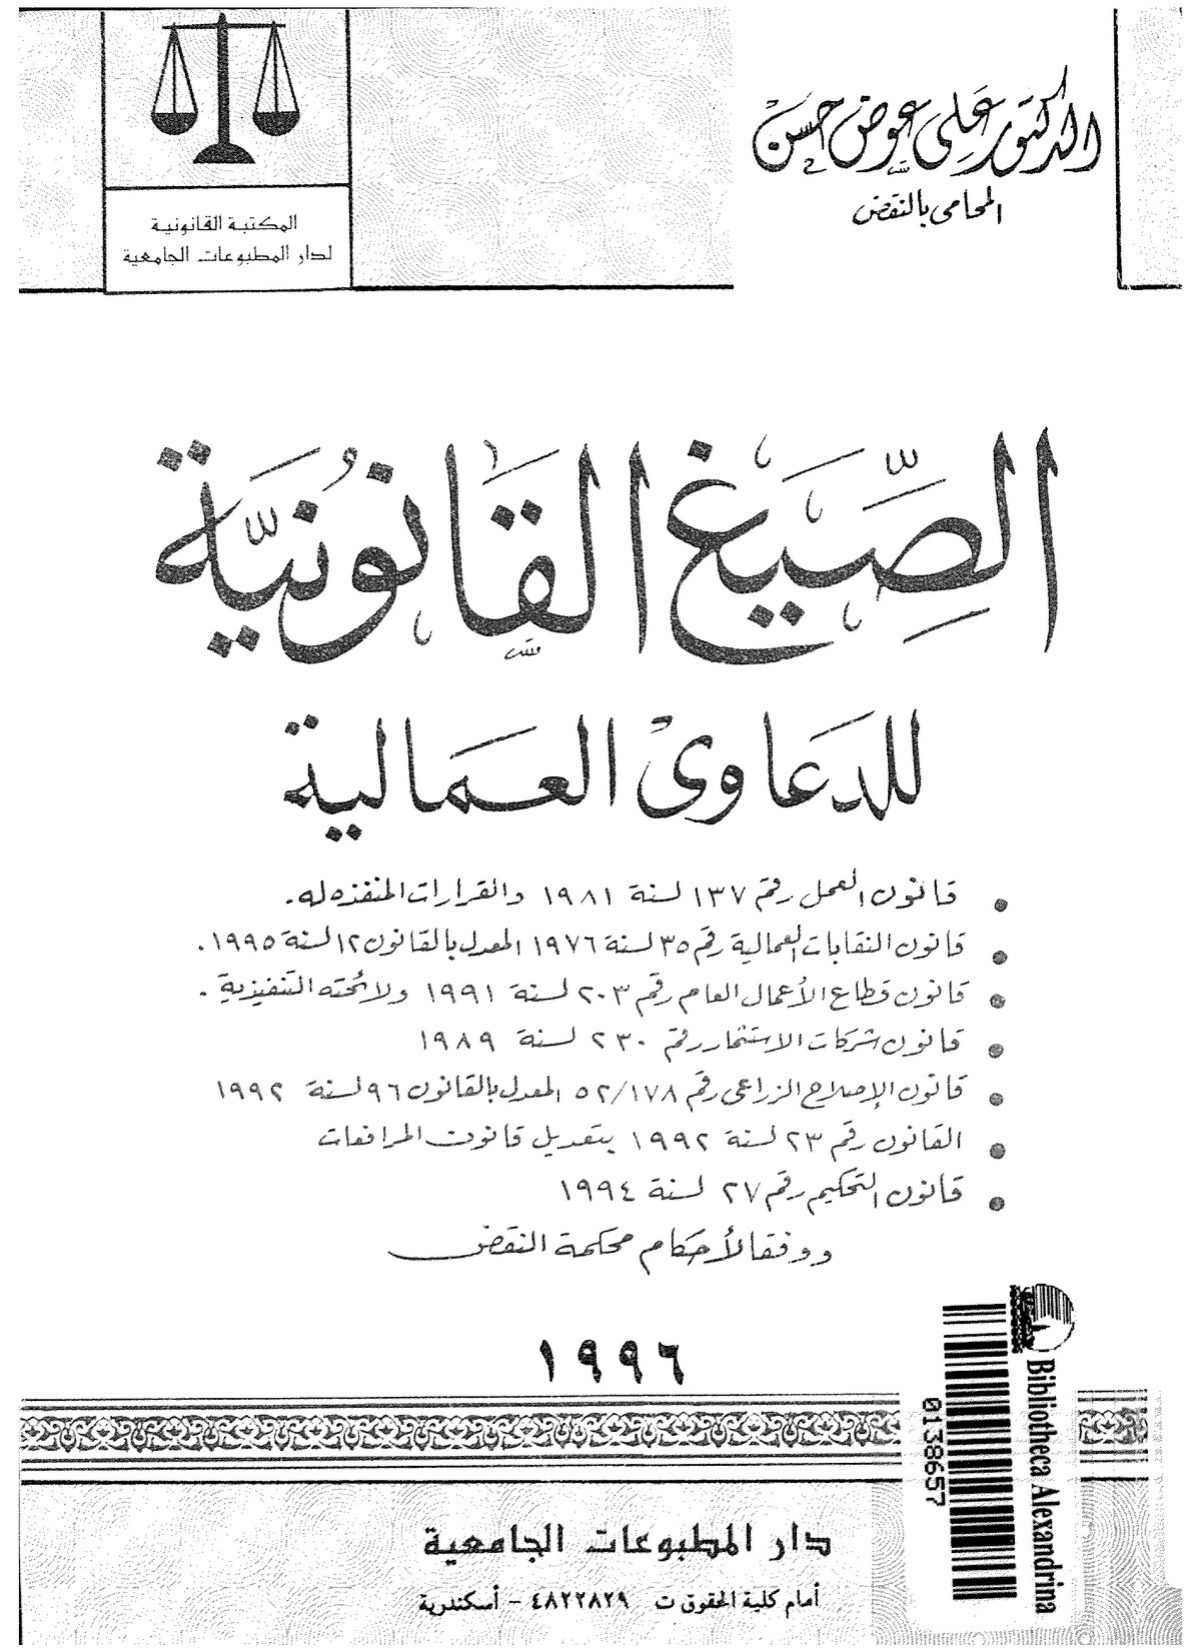 الدكتور على عوض حسن
المحامى بالنقض
المكتبة القانونية
لدار المطبوعات الجامعية
الصِّيَغ القَانُونيَّة
للدعاوى العمالية
• قانون العمل رقم ١٣٧ لسنة ١٩٨١ والقرارات المنفذه له.
• قانون النقابات العمالية رقم ٣٥ لسنة ١٩٧٦ المعدل بالقانون ١٢ لسنة ١٩٩٥.
• قانون قطاع الأعمال العام رقم ٢٠٣ لسنة ١٩٩١ ولائحته التنفيذية.
• قانون شركات الاستثمار رقم ٢٣٠ لسنة ١٩٨٩
• قانون الإصلاح الزراعى رقم ٥٢/١٧٨ المعدل بالقانون ٩٦ لسنة ١٩٩٢
• القانون رقم ٢٣ لسنة ١٩٩٢ بتعديل قانون المرافعات
• قانون التحكيم رقم ٢٧ لسنة ١٩٩٤
ووفقا لأحكام محكمة النقض
١٩٩٦
Bibliotheca Alexandrina
0138657
دار المطبوعات الجامعية
أمام كلية الحقوق ت ٤٨٢٢٨٢٩ - أسكندرية